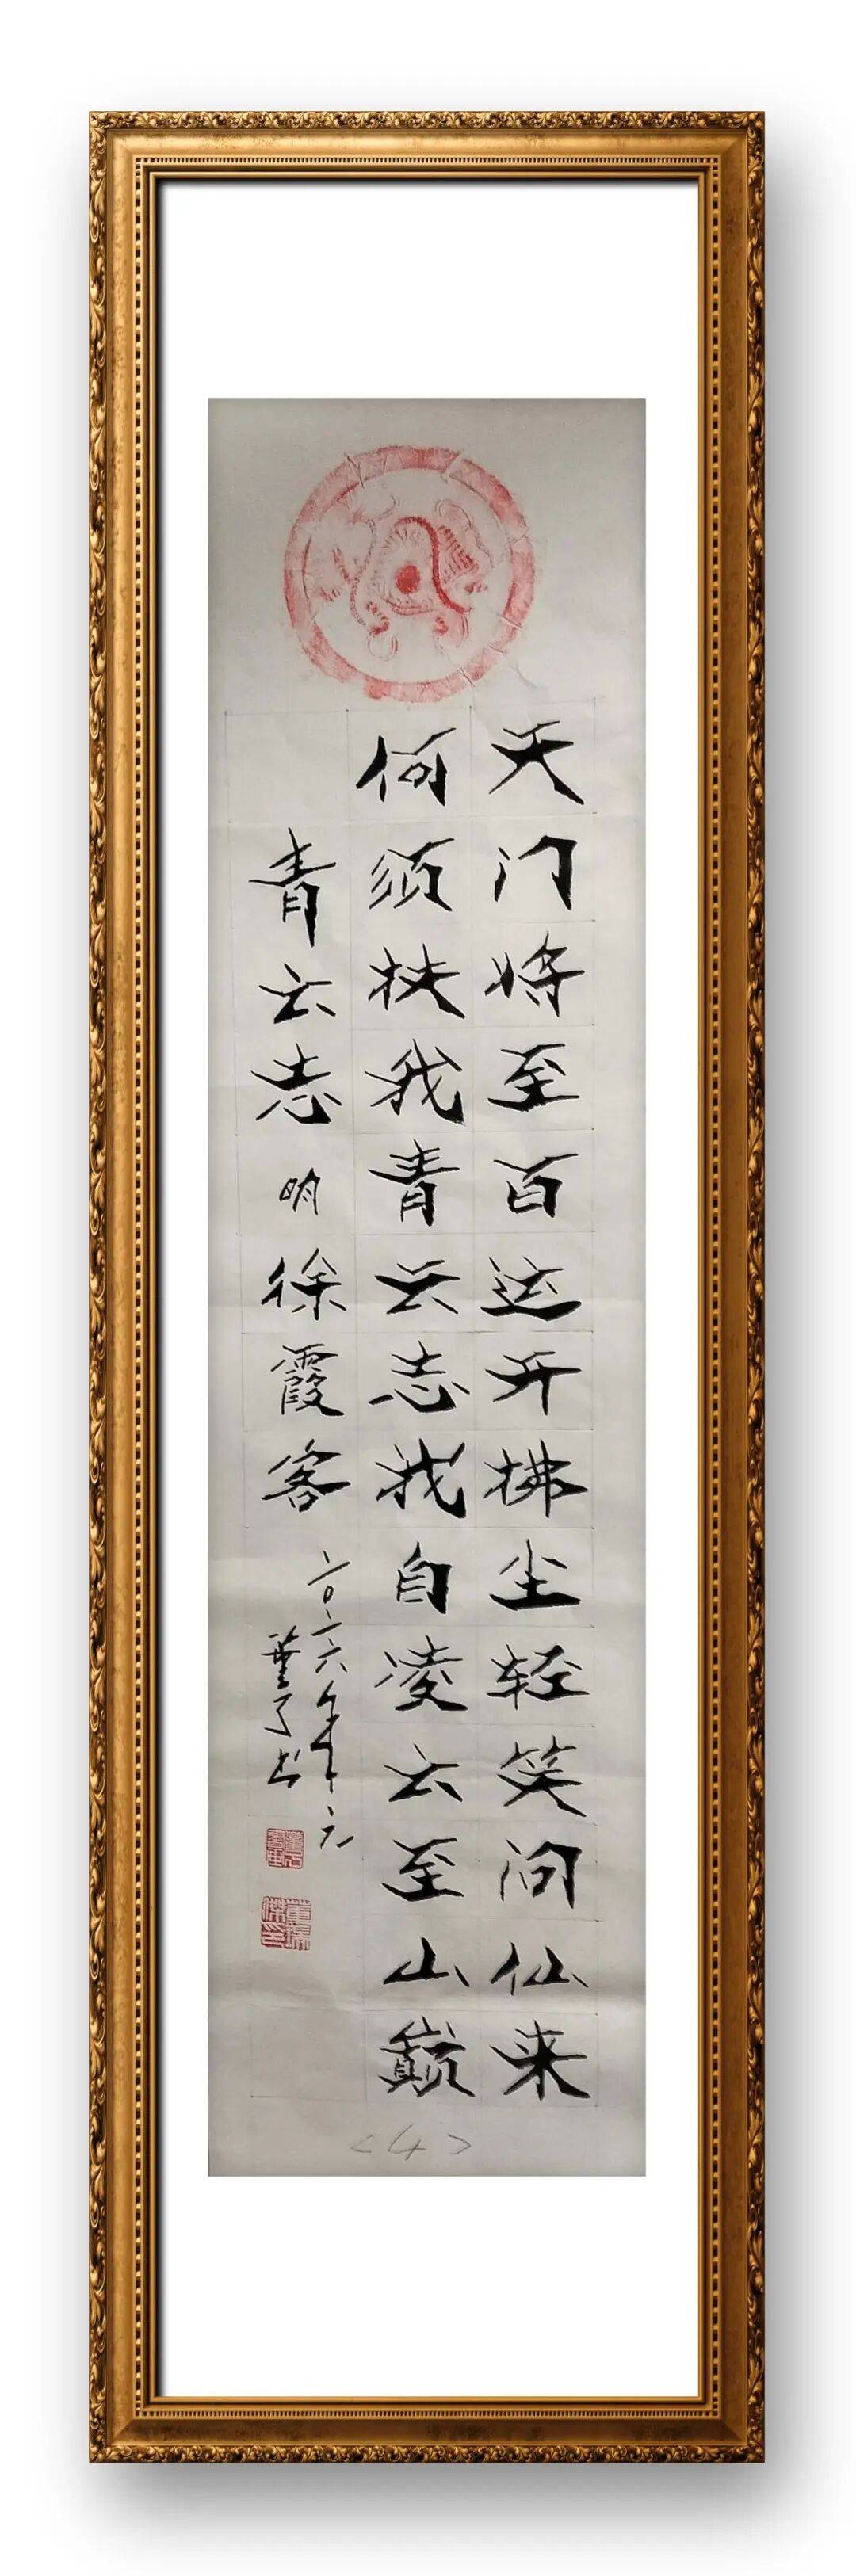 天门将至百运开拂尘轻笑问仙来
何须扶我青云志我自凌云至山巅
青云志明徐霞客
二〇二六年元
董了书
<4>